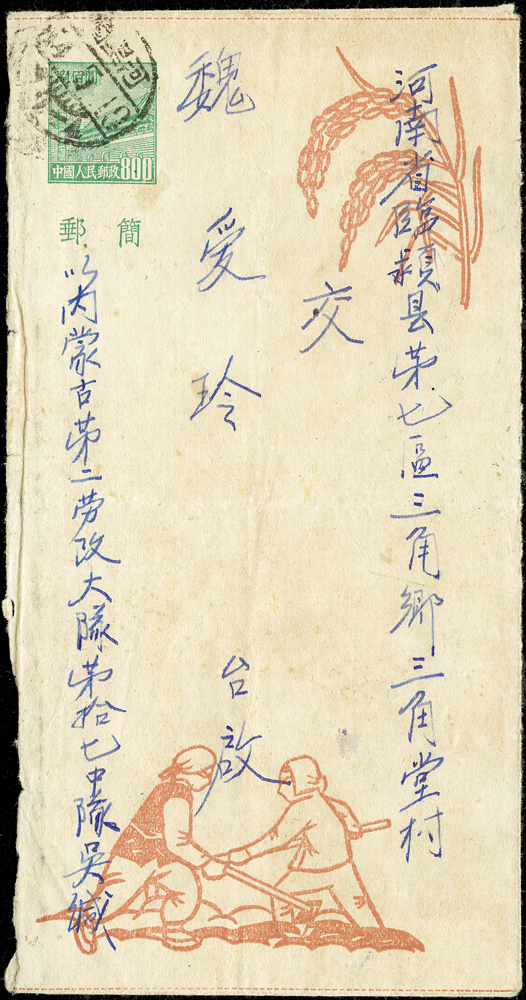 河南省臨潁县苐七區三角鄉三角堂村
交
魏爱玲 台啟
中國人民郵政 800
郵簡
以内蒙古苐二劳改大隊苐拾七中隊吳缄